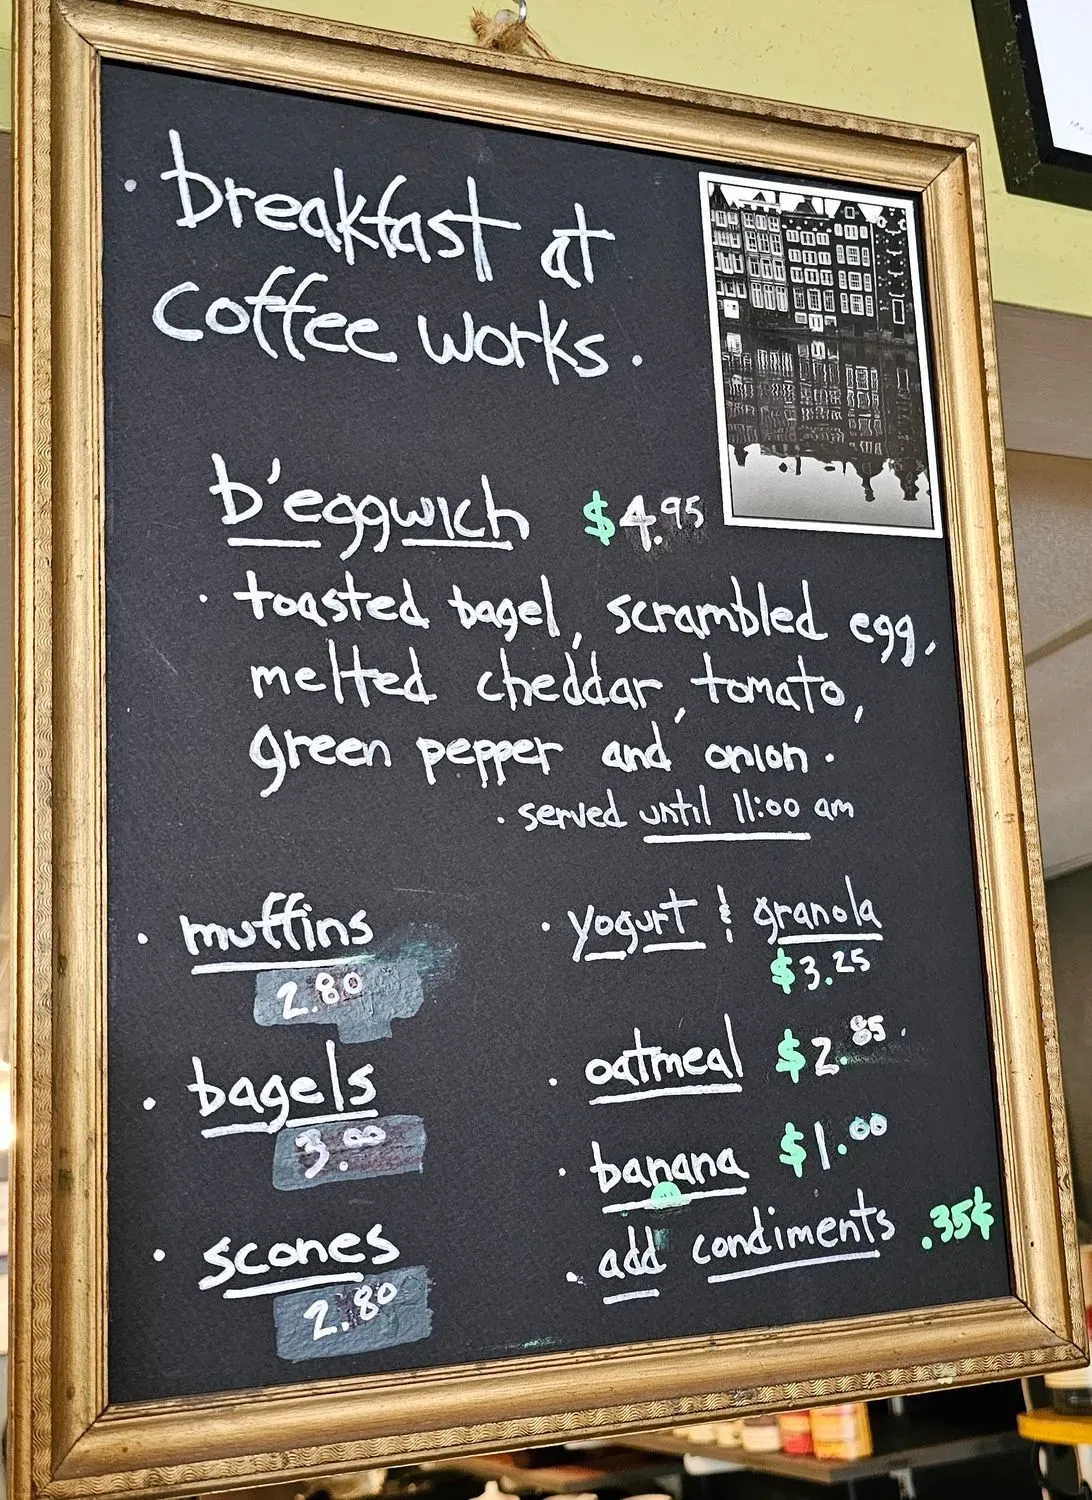 · breakfast at
coffee works.
b'eggwich $4.95
· toasted bagel, scrambled egg,
melted cheddar, tomato,
green pepper and onion.
· served until 11:00 am
· muffins
2.80
· bagels
3.00
· scones
2.80
· yogurt & granola
$3.25
· oatmeal $2.85.
· banana $1.00
· add condiments .35¢